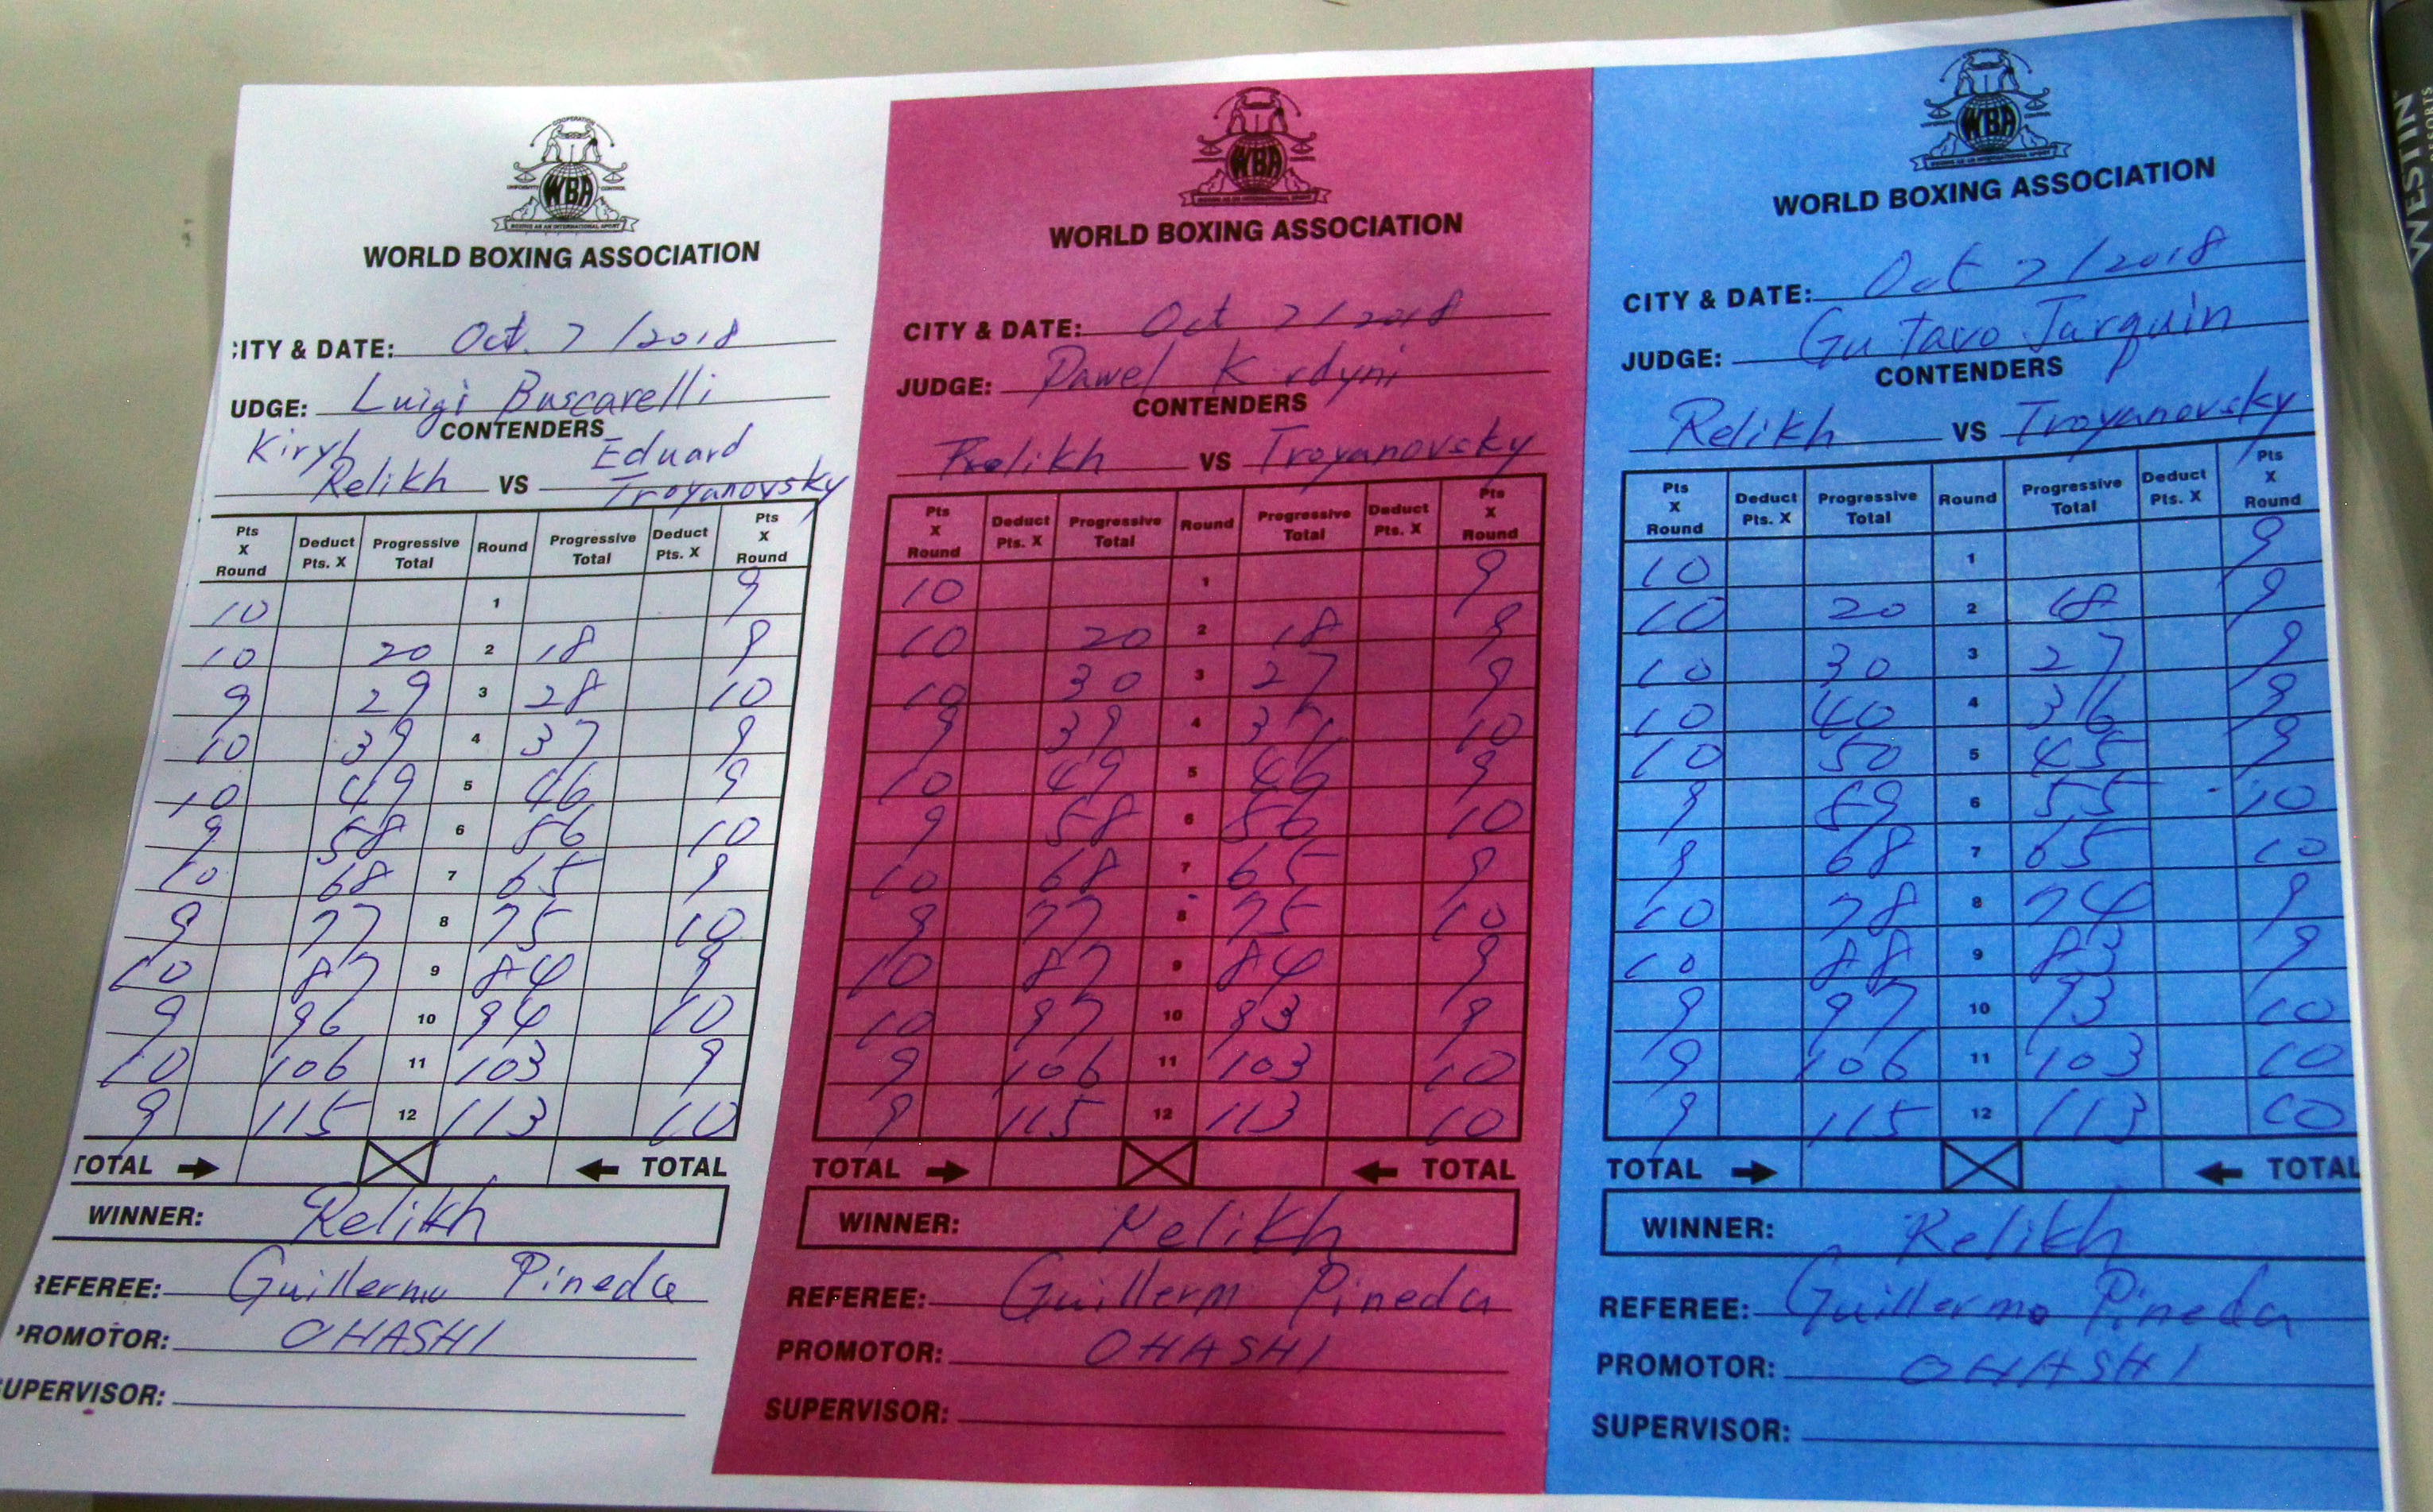 COOPERATION
UNIFORMITY WBA CONTROL
BOXING AS AN INTERNATIONAL SPORT
WORLD BOXING ASSOCIATION
CITY & DATE: Oct. 7 / 2018
UDGE: Luigi Buscarelli
CONTENDERS
Kiryl Eduard
Relikh VS Troyanovsky
Pts X Round Deduct Pts. X Progressive Total Round Progressive Total Deduct Pts. X Pts X Round
10 1 9
10 20 2 18 9
9 29 3 28 10
10 39 4 37 9
10 49 5 46 9
9 58 6 56 10
10 68 7 65 9
9 77 8 75 10
10 87 9 84 9
9 96 10 94 10
10 106 11 103 9
9 115 12 113 10
TOTAL TOTAL
WINNER: Relikh
REFEREE: Guillermo Pineda
PROMOTOR: OHASHI
SUPERVISOR:
WBA
BOXING AS AN INTERNATIONAL SPORT
WORLD BOXING ASSOCIATION
CITY & DATE: Oct 7 / 2018
JUDGE: Pawel Kardyni
CONTENDERS
Relikh VS Troyanovsky
Pts X Round Deduct Pts. X Progressive Total Round Progressive Total Deduct Pts. X Pts X Round
10 1 9
10 20 2 18 9
10 30 3 27 9
9 39 4 37 10
10 49 5 46 9
9 58 6 56 10
10 68 7 65 9
9 77 8 75 10
10 87 9 84 9
10 97 10 93 9
9 106 11 103 10
9 115 12 113 10
TOTAL TOTAL
WINNER: Relikh
REFEREE: Guillerm Pineda
PROMOTOR: OHASHI
SUPERVISOR:
WBA
BOXING AS AN INTERNATIONAL SPORT
WORLD BOXING ASSOCIATION
CITY & DATE: Oct 7 / 2018
JUDGE: Gu Tavo Jarquin
CONTENDERS
Relikh VS Troyanovsky
Pts X Round Deduct Pts. X Progressive Total Round Progressive Total Deduct Pts. X Pts X Round
10 1 9
10 20 2 18 9
10 30 3 27 9
10 40 4 36 9
10 50 5 45 9
9 59 6 55 10
9 68 7 65 10
10 78 8 74 9
10 88 9 83 9
9 97 10 93 10
9 106 11 103 10
9 115 12 113 10
TOTAL TOTAL
WINNER: Relikh
REFEREE: Guillermo Pineda
PROMOTOR: OHASHI
SUPERVISOR:
WESTIN